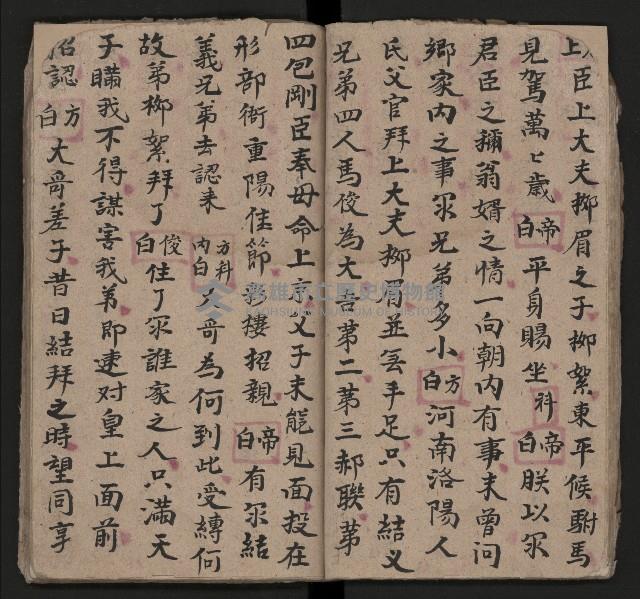 臣上大夫柳眉之子柳絮東平候駙馬
見駕萬々歲 帝白 平身賜坐 科 帝白 朕以眾
君臣之稱翁婿之情一向朝内有事未曾问
鄉家内之事眾兄弟多小 方白 河南洛陽人
氏父官拜上大夫柳眉並無手足只有結义
兄弟四人馬俊為大吾第二第三郝聯第
四包剛臣奉母命上京父子未能見面投在
形部衙重陽佳節搭樓招親 帝白 有眾結
義兄弟去認来 方科内白 大哥為何到此受縛何
故弟柳絮拜了 俊白 住了眾誰家之人只滿天
子瞞我不得謀害我弟即速对皇上面前
招認 方白 大哥差子昔日結拜之時望同享
高雄市立歷史博物館
KAOHSIUNG MUSEUM OF HISTORY